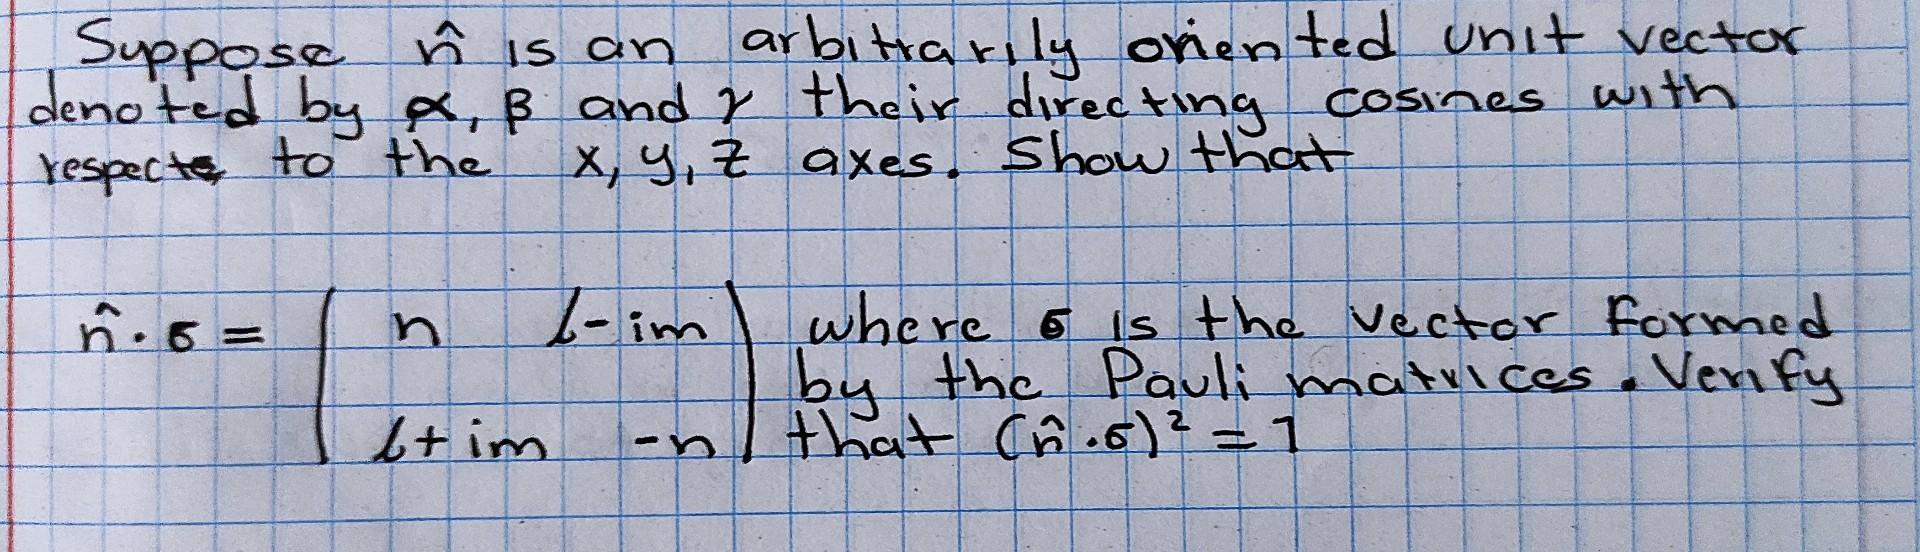 Suppose n̂ is an arbitrarily oriented unit vector
denoted by α, β and γ their directing cosines with
respecte to the x, y, z axes. Show that
n̂ · σ = ( n l - im ) where σ is the vector formed
by the Pauli matrices. Verify
( l + im -n ) that (n̂ · σ)² = 1